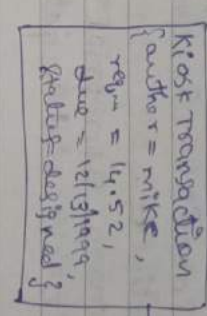 Kiosk Transaction
{author = mike,
reqm = 14.52,
due = 12/13/1999,
status=designed}